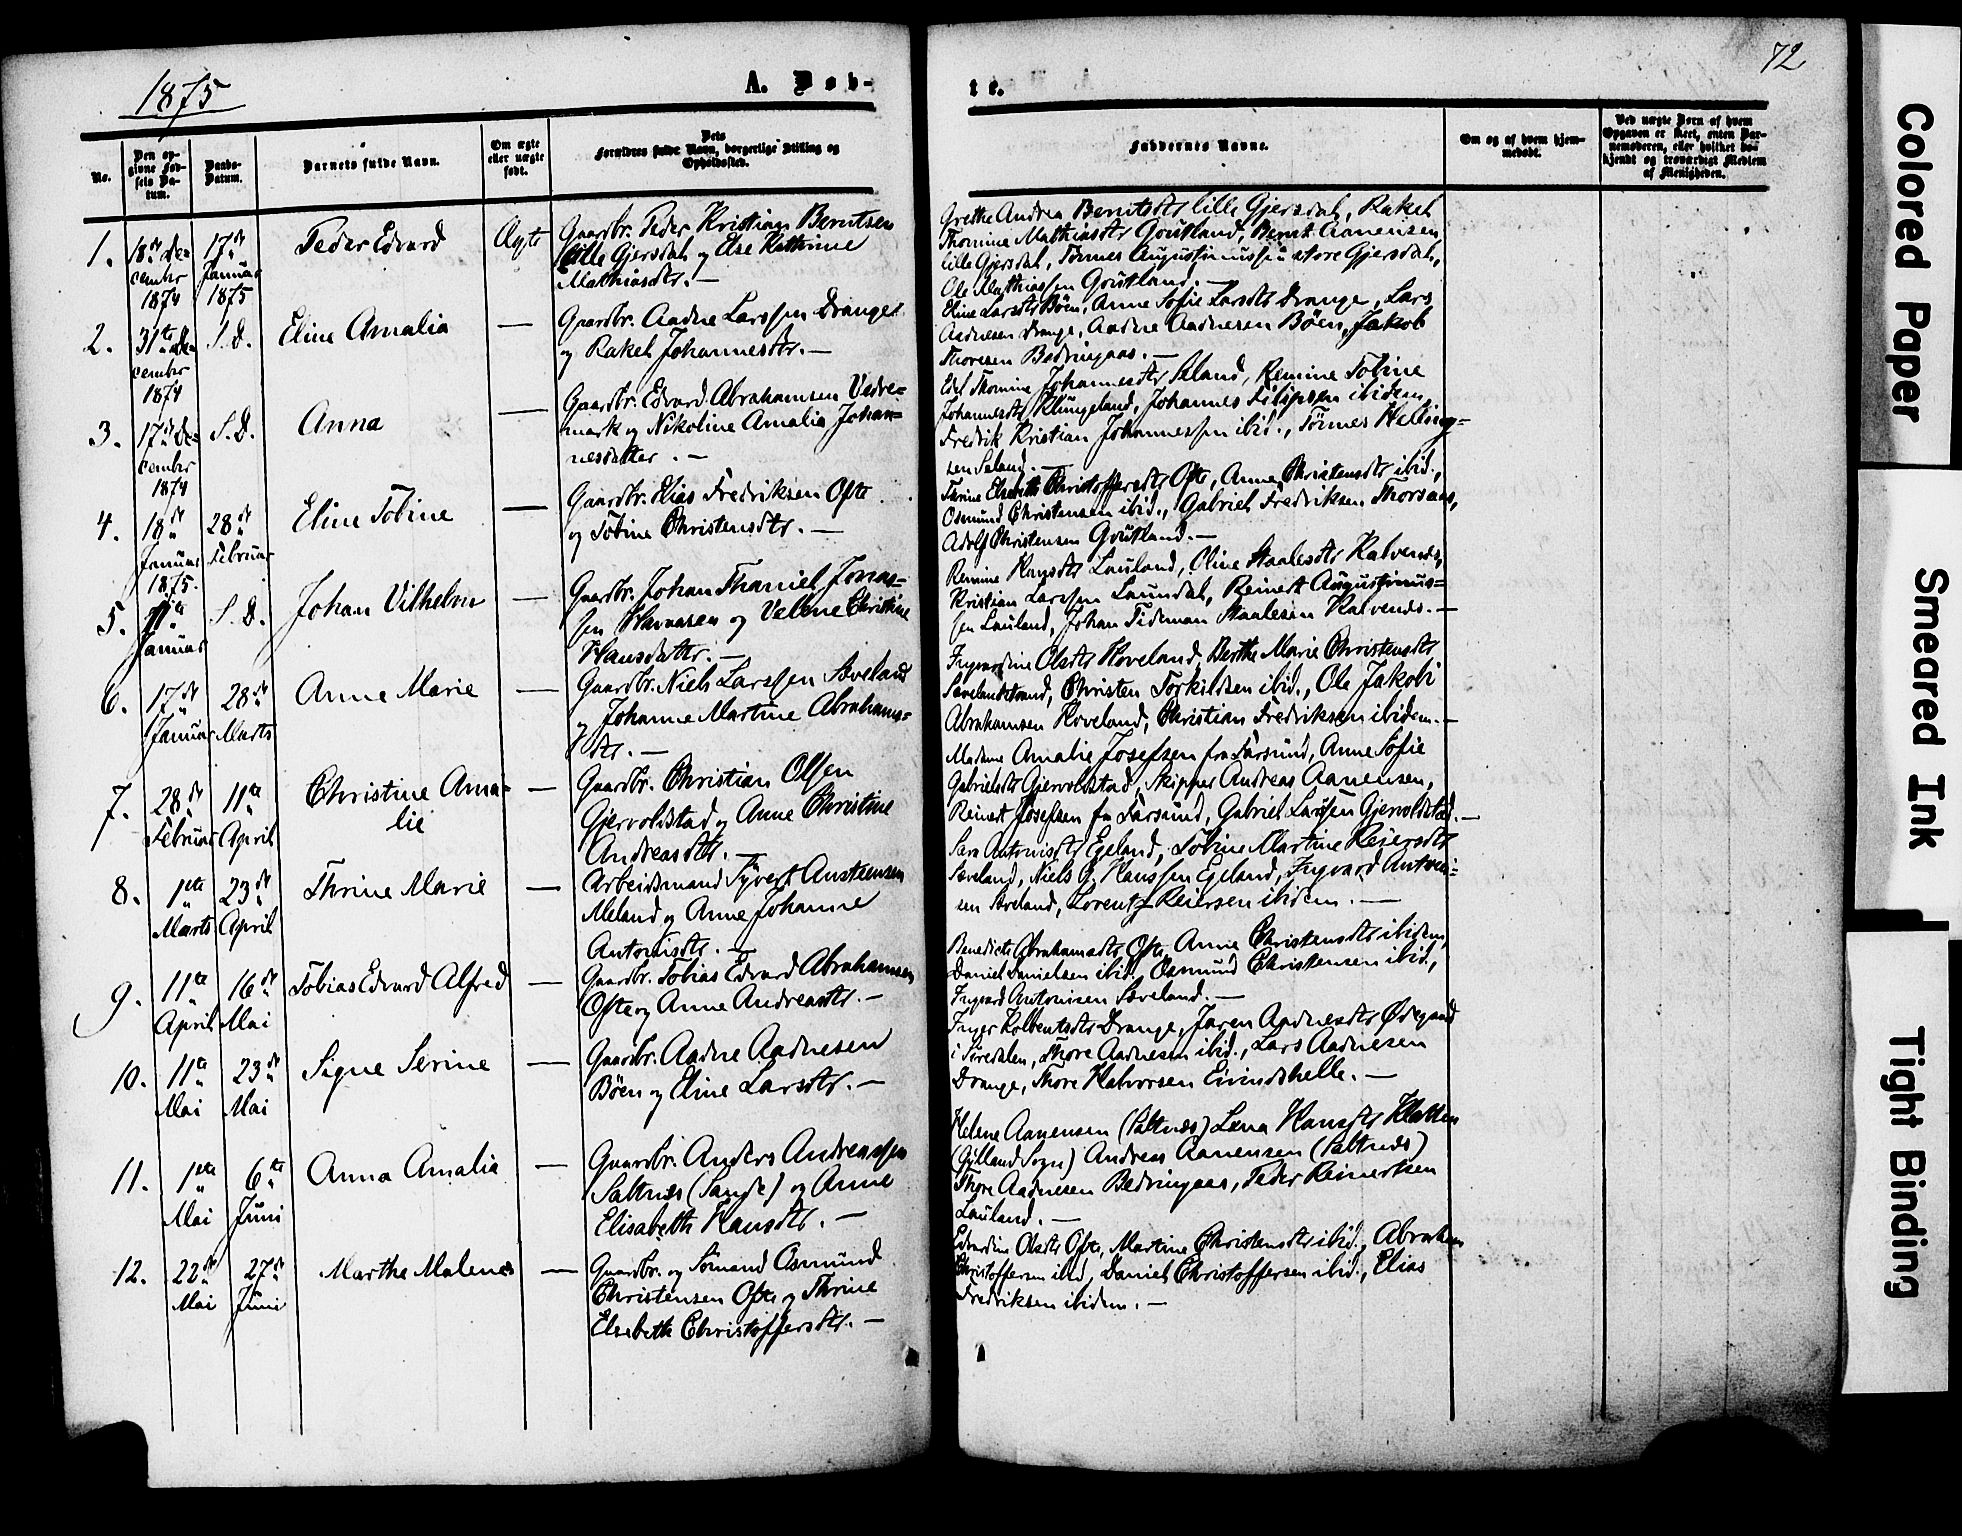 1875
A. Døb-
te.
72
No.
Den opgivne Fødsels Datum.
Daabs-Datum.
Barnets fulde Navn.
Om ægte eller uægte født.
Forældres fulde Navn, borgerlige Stilling og Opholdssted.
Faddernes Navne.
Om og af hvem hjemmedøbt.
Ved uægte Børn af hvem Opgaven er skeet, enten Barnemoderen, eller hvilket bekjendt og troværdigt Medlem af Menigheden.
1. 18de December 1874 17de Januar 1875 Peder Edvard Ægte
Gaardbr. Peder Kristian Berntsen
lille Gjersdal og Else Kathrine
Mathiasdtr. —
Grethe Andrea Berntsdtr lille Gjersdal, Rakel
Thomine Mathiasdtr Goutland, Bernt Aanensen
lille Gjersdal, Tønnes Augustinussen store Gjersdal,
Ole Mathiassen Goutland. —
2. 31te December 1874 S.D. Eline Amalia —
Gaardbr. Aadne Larssen Drange
og Rakel Johannesdtr. —
Eline Larsdtr Böen, Anne Sofie Larsdtr Drange, Lars
Aadnesen Drange, Aadne Aadnesen Böen, Jakob
Thoresen Bedringaas. —
3. 17de December 1874 S.D. Anna —
Gaardbr. Edvard Abrahamsen Vedre-
mark og Nikoline Amalia Johan-
nesdatter. —
Edel Thomine Johannesdtr Saland, Remine Tobine
Johannesdtr Klungeland, Johannes Filipsen ibidem,
Fredrik Kristian Johannessen ibid., Tönnes Helling-
sen Saland. —
4. 18de Januar 1875. 28de Februar Eline Tobine —
Gaardbr. Elias Fredriksen Ofte
og Tobine Christensdtr. —
Thrine Elsebeth Christoffersdtr Ofte, Anne Christensdtr ibid.,
Osmund Christensen ibid., Gabriel Fredriksen Thorsaas,
Adolf Christensen Goutland. —
5. 11te Januar S.D. Johan Vilhelm —
Gaardbr. Johan Thaniel Jonas-
sen Havaasen og Velene Christine
Hansdatter. —
Remine Hansdtr Lauland, Oline Staalesdtr Halvends,
Kristian Larssen Laundal, Reinert Augustinus-
sen Lauland, Johan Tideman Staalesen Halvends. —
6. 17de Januar 28de Marts Anne Marie —
Gaardbr. Niels Larssen Sæveland
og Johanne Martine Abrahams-
dtr. —
Ingvardine Olsdtr Hoveland, Berthe Marie Christensdtr
Sævelandstrand, Christen Torkildsen ibid., Ole Jakobi
Abrahamsen Hoveland, Christian Fredriksen ibidem. —
7. 28de Februar 11te April Christine Ama-
lie —
Gaardbr. Christian Olsen
Gjervoldstad og Anne Christine
Andreasdtr. —
Madame Amalie Josefsen fra Farsund, Anne Sofie
Gabrielsdtr Gjervoldstad, Skipper Andreas Aanensen,
Reinert Josefsen fra Farsund, Gabriel Larssen Gjervoldstad. —
8. 1ste Marts 23de April Thrine Marie —
Arbeidsmand Syvert Austensen
Meland og Anne Johanne
Antonisdtr. —
Sara Antonisdtr Egeland, Tobine Martine Reiersdtr
Sæveland, Niels G. Hanssen Egeland, Ingvard Antoni-
sen Sæveland, Lorentz Reiersen ibidem. —
9. 11te April 16de Mai Tobias Edvard Alfred —
Gaardbr. Tobias Edvard Abrahamsen
Ofte og Anne Andreasdtr. —
Benedicte Abrahamsdtr Ofte, Anne Christensdtr ibidem,
Daniel Danielsen ibid., Osmund Christensen ibid.,
Ingvard Antonisen Sæveland. —
10. 11te Mai 23de Mai Signe Serine —
Gaardbr. Aadne Aadnesen
Böen og Eline Larsdtr. —
Inger Holbentsdtr Drange, Jaren Aadnesdtr Ødegaard
i Siredalen, Thore Aadnesen ibid., Lars Aadnesen
Drange, Thore Halvorsen Eivindshelle. —
11. 1ste Mai 6te Juni Anna Amalia —
Gaardbr. Anders Andreassen
Saltnæs (Sande) og Anne
Elisabeth Hansdtr. —
Helene Aanensen (Saltnæs) Lena Hansdtr
(Gylland Sogn) Andreas Aanensen (Saltnæs)
Thore Aadnesen Bedringaas, Peder Reinertsen
Lauland. —
12. 22de Mai 27de Juni Marthe Malene —
Gaardbr. og Sömand Osmund
Christensen Ofte og Thrine
Elsebeth Christoffersdtr. —
Edvardine Olsdtr Ofte, Martine Christensdtr ibid., Abraham
Christoffersen ibid, Daniel Christoffersen ibid., Elias
Fredriksen ibidem. —
Colored Paper
Smeared Ink
Tight Binding